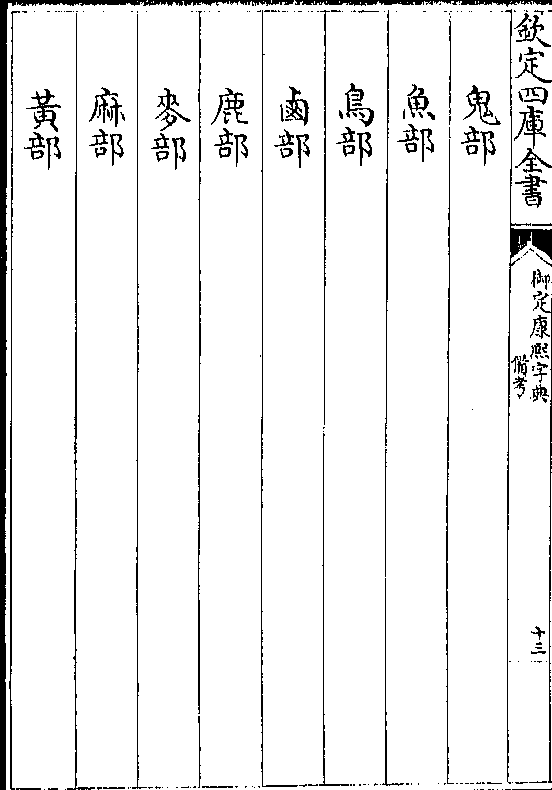 欽定四庫全書
御定康熙字典
備考
十三
鬼部
魚部
鳥部
鹵部
鹿部
麥部
麻部
黃部